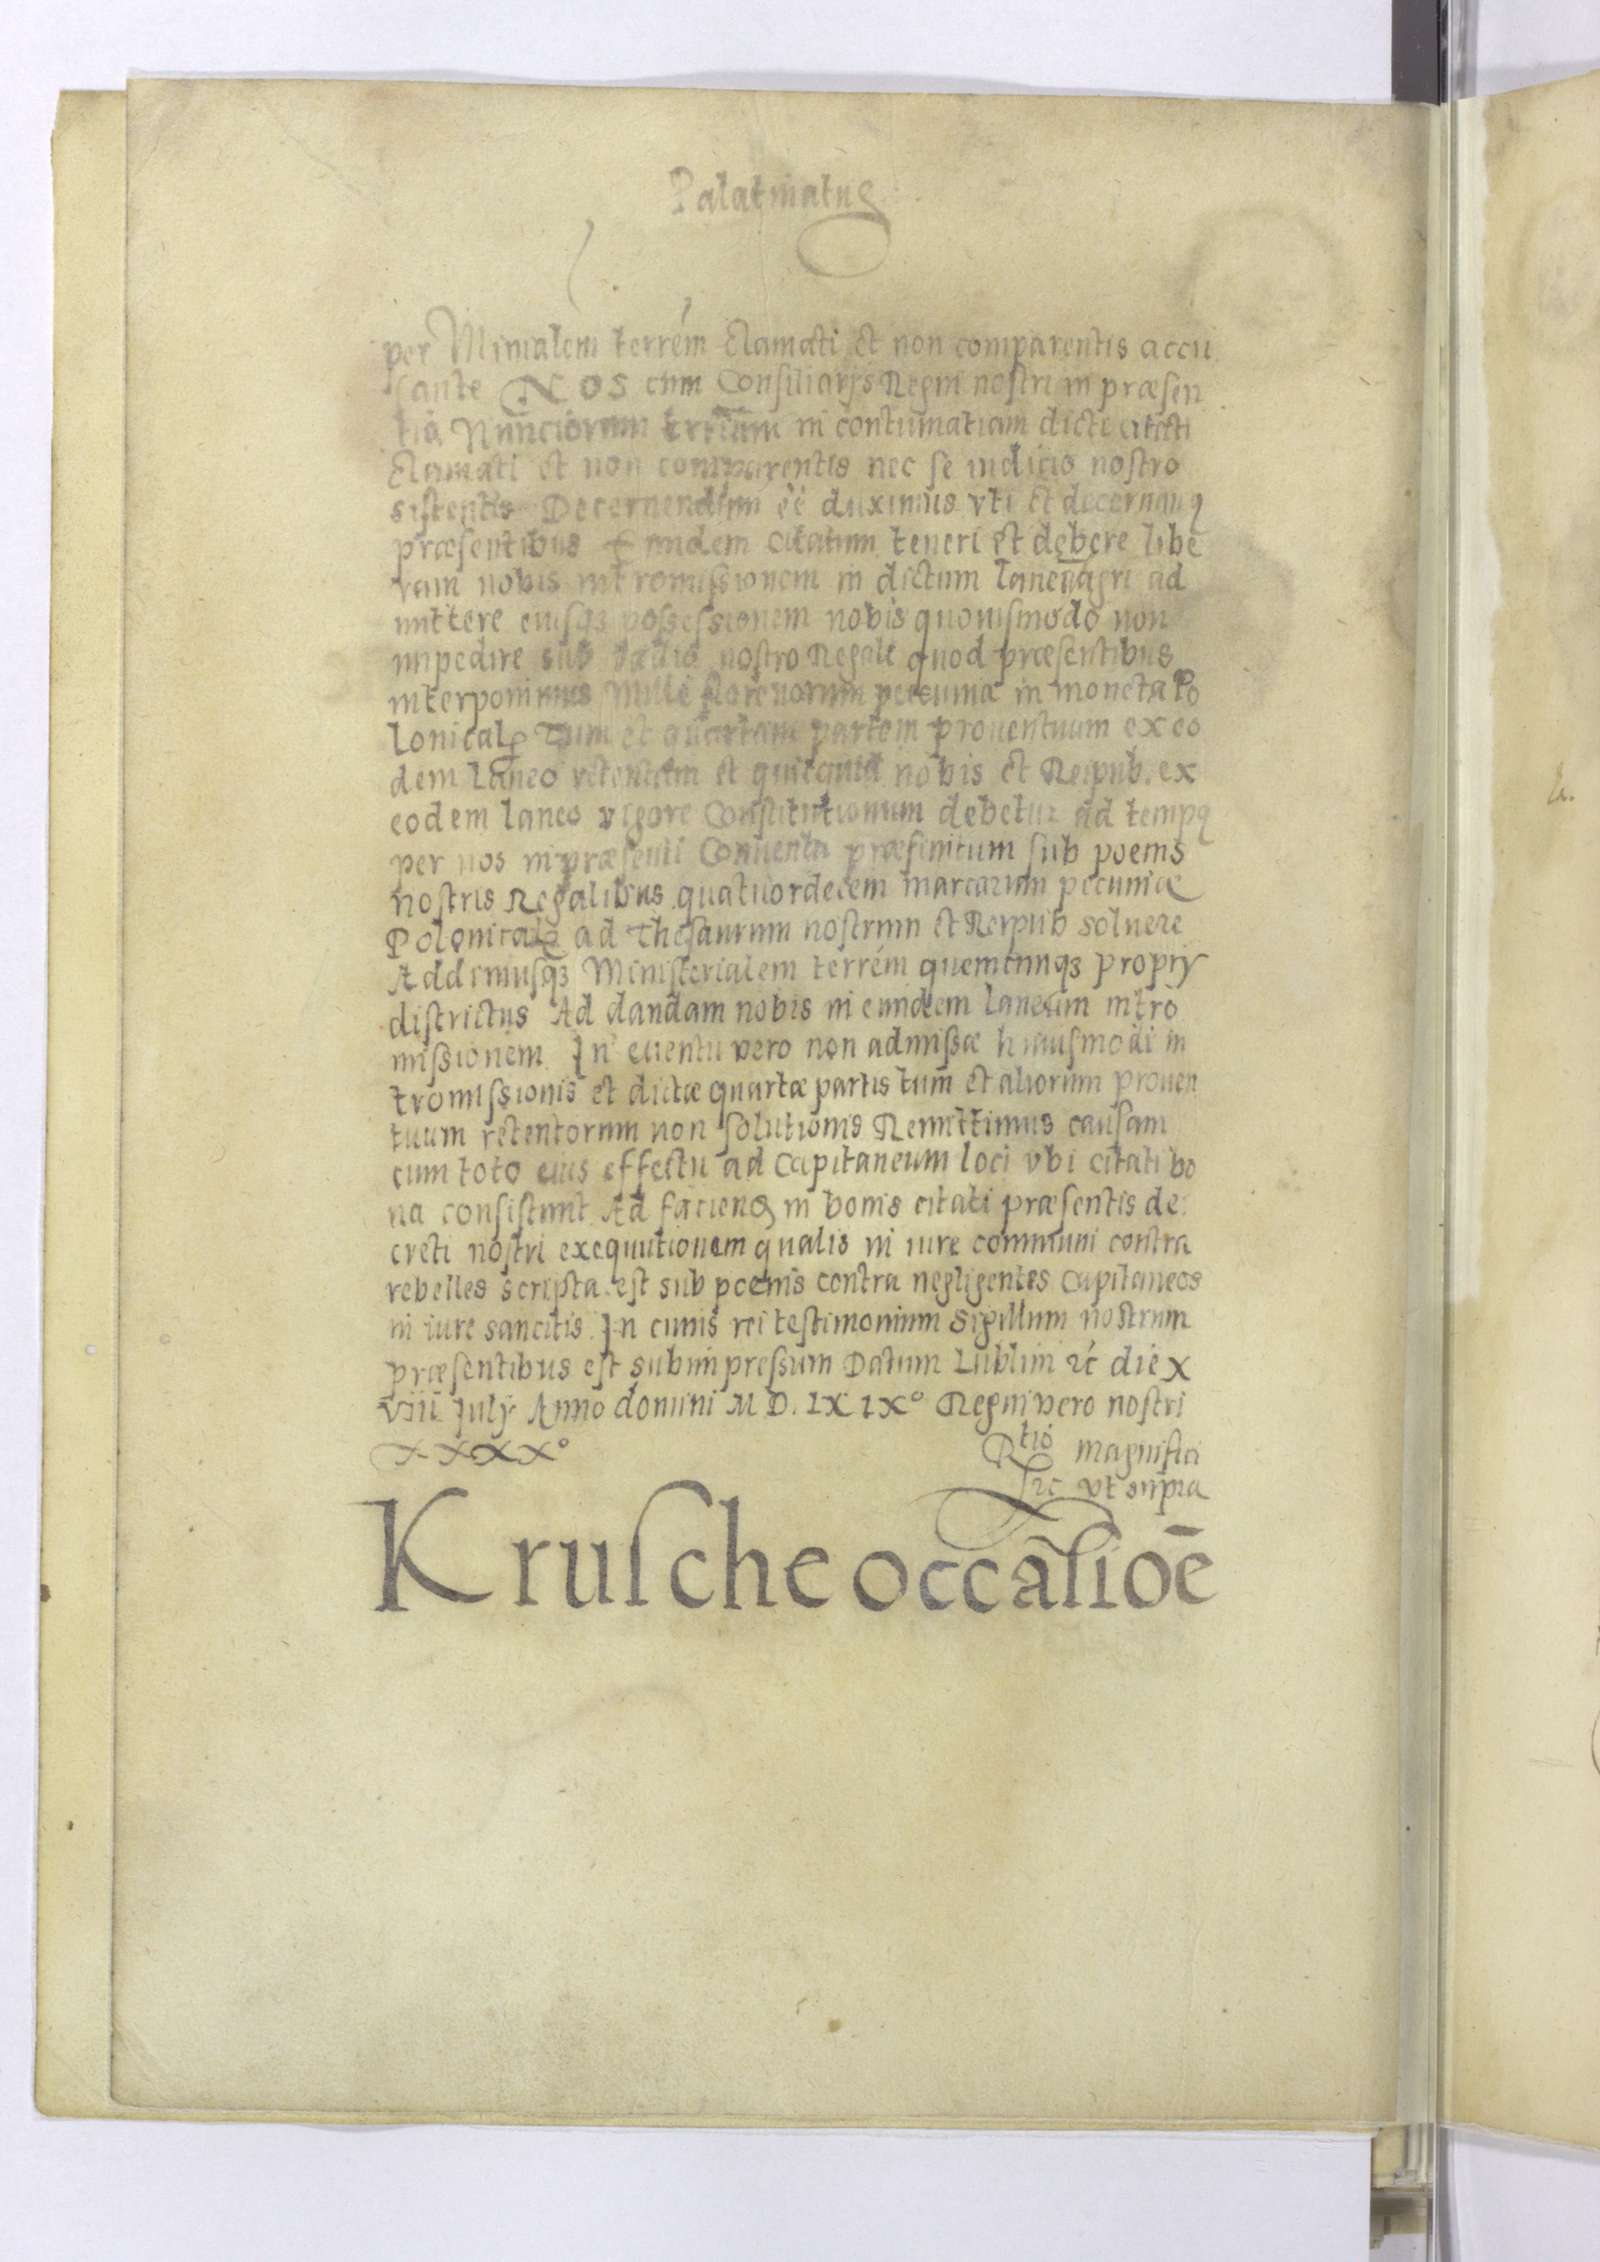 Palatinatus
per Minialem terrém Clamati et non comparentis accu
sante Nos cum Consiliarijs Regni nostri in præsen
tia Nunciorum terrarum in contumatiam dicti citati
Clamati et non comparentis nec se iudicio nostro
sistentis Decernendum eē duximus vti et decernimus
præsentibus Eundem citatum teneri et debere libe
ram nobis intromissionem in dictum laneū agri ad
mittere eiusqȝ possessionem nobis quouismodo non
impedire sub vadio nostro Regali quod præsentibus
interponimus Mille florenorum pecuniæ in moneta Po
lonical Tum et quartam partem prouentuum ex eo
dem laneo retentam et quicquid nobis et Reipub. ex
eodem laneo vigore Constitutionum debetur ad tempꝯ
per nos in præsenti Conuentu præfinitum sub poenis
nostris Regalibus quatuordecem marcarum pecuniæ
Polonical ad Thesaurum nostrum et Reipub soluere
Addimusqȝ Ministerialem terrém quemcunqȝ proprij
districtus Ad dandam nobis in eundem laneum intro
missionem. In euentu vero non admissæ huiusmodi in
tromissionis et dictæ quartæ partis tum et aliorum prouen
tuum retentorum non solutionis Remittimus causam
cum toto eius effectu ad Capitaneum loci vbi citati bo
na consistunt Ad faciend in bonis citati præsentis de
creti nostri exequutionem qualis in iure communi contra
rebelles scripta est sub poenis contra negligentes Capitaneos
in iure sancitis. In cuius rei testimonium Sigillum nostrum
præsentibus est subimpressum Datum Lublini ꝛć die x
viii July Anno domini M D. LX IX° Regni vero nostri
XXXX°
Rtio magnifici
ꝛc vt supra
Krusche occāsioē